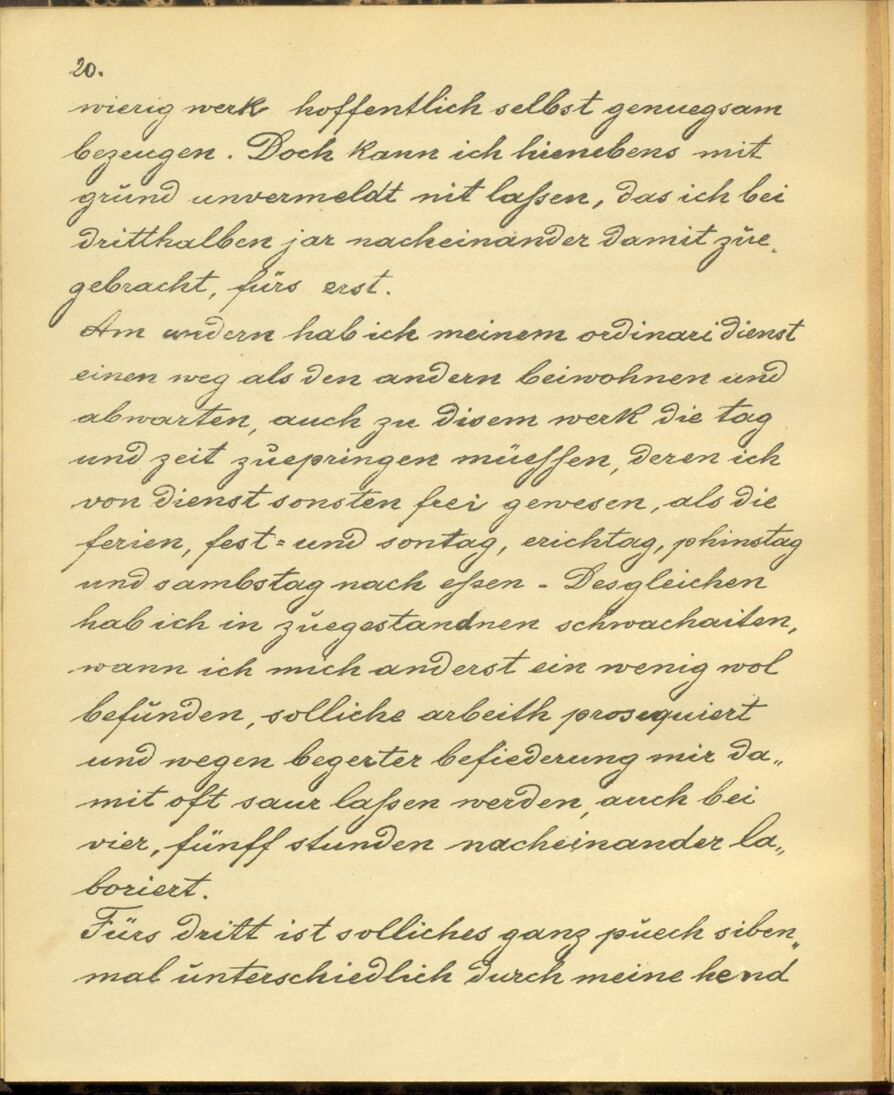 20.
wierig werk hoffentlich selbst genuegsam
bezeugen. Doch kann ich hienebens mit
grŭnd unvermeldt nit laßen, das ich bei
dritthalben jar nacheinander damit zŭe„
gebracht, fürs erst.
Am andern hab ich meinem ordinari dienst
einen weg als den andern beiwohnen und
abwarten, auch zu disem werk die tag
und zeit zŭepringen müessen, deren ich
von dienst sonsten frei gewesen, als die
ferien, fest= und sontag, erichtag, phinstag
und sambstag nach eßen - Desgleichen
hab ich in zŭegestandnen schwachaiten,
wann ich mich anderst ein wenig wol
befŭnden, solliche arbeith prosequiert
und wegen begerter befiederung mir da„
mit oft saur laßen werden, auch bei
vier, fünff stunden nacheinander la„
boriert.
Fürs dritt ist solliches ganz pŭech siben„
mal ŭnterschiedlich dŭrch meine hend